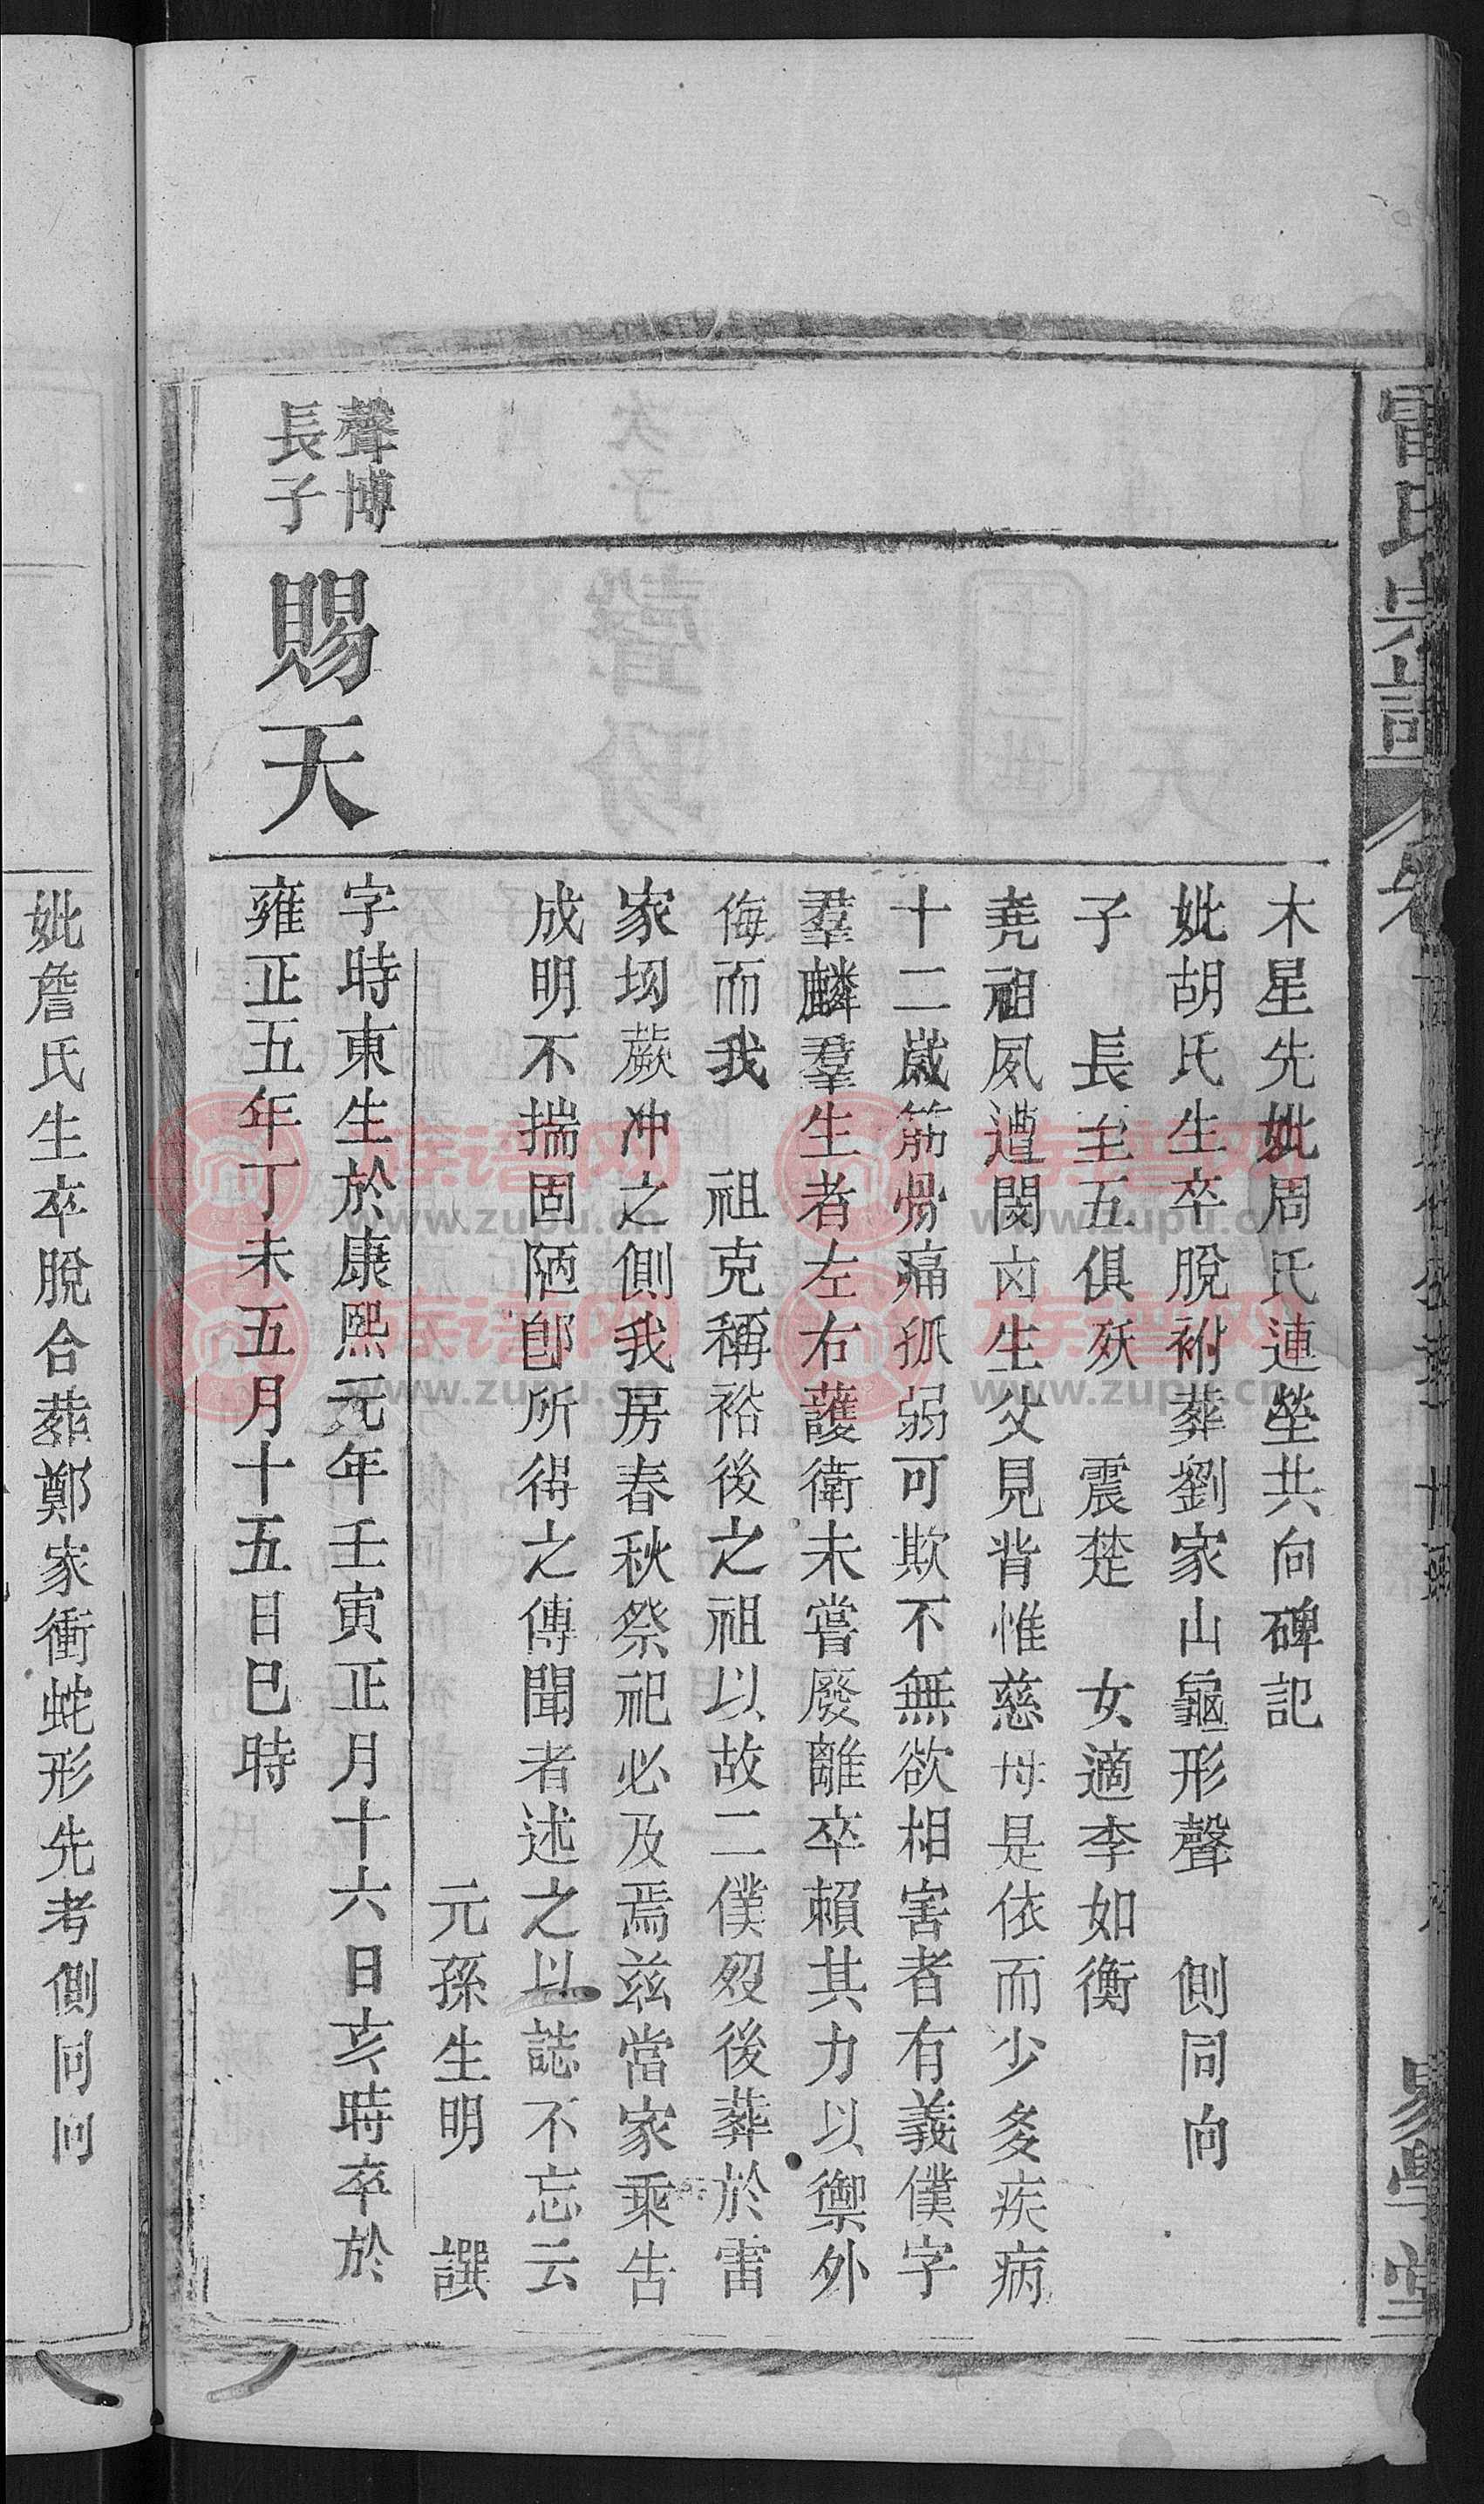 雷氏宗譜
木星先妣周氏連塋共向碑記
妣胡氏生卒脫祔葬劉家山龜形聲　側同向
子　長至五俱殀　震楚　女適李如衡
堯祖夙遭閔凶生父見背惟慈母是依而少多疾病
十二歲筋骨痛孤弱可欺不無欲相害者有義僕字
羣麟羣生者左右護衛未嘗廢離卒賴其力以禦外
侮而我　祖克稱裕後之祖以故二僕歿後葬於雷
家㘭蕨冲之側我房春秋祭祀必及焉茲當家乘告
成明不揣固陋卽所得之傳聞者述之以誌不忘云
元孫生明　譔
聲博
長子
賜天
字時東生於康熙元年壬寅正月十六日亥時卒於
雍正五年丁未五月十五日巳時
妣詹氏生卒脫合葬鄭家衝蛇形先考側同向
族谱网
www.zupu.cn
族谱网
www.zupu.cn
族谱网
www.zupu.cn
族谱网
www.zupu.cn